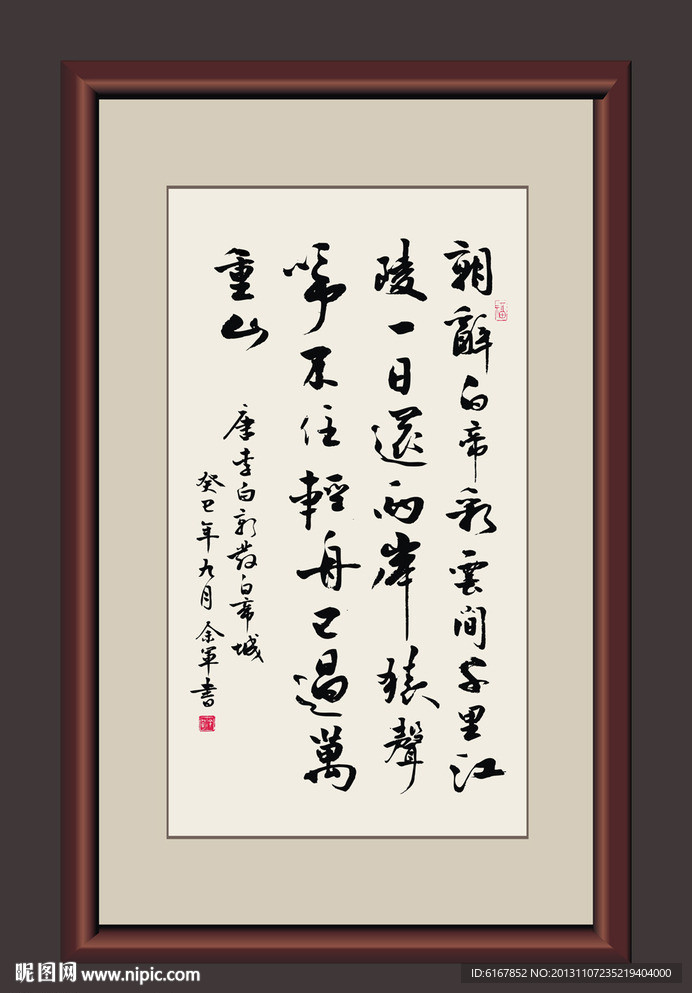 朝辭白帝彩雲間千里江
陵一日還兩岸猿聲
啼不住輕舟已過萬
重山
唐李白朝發白帝城
癸巳年九月余軍書
昵图网 www.nipic.com
ID:6167852 NO:20131107235219404000